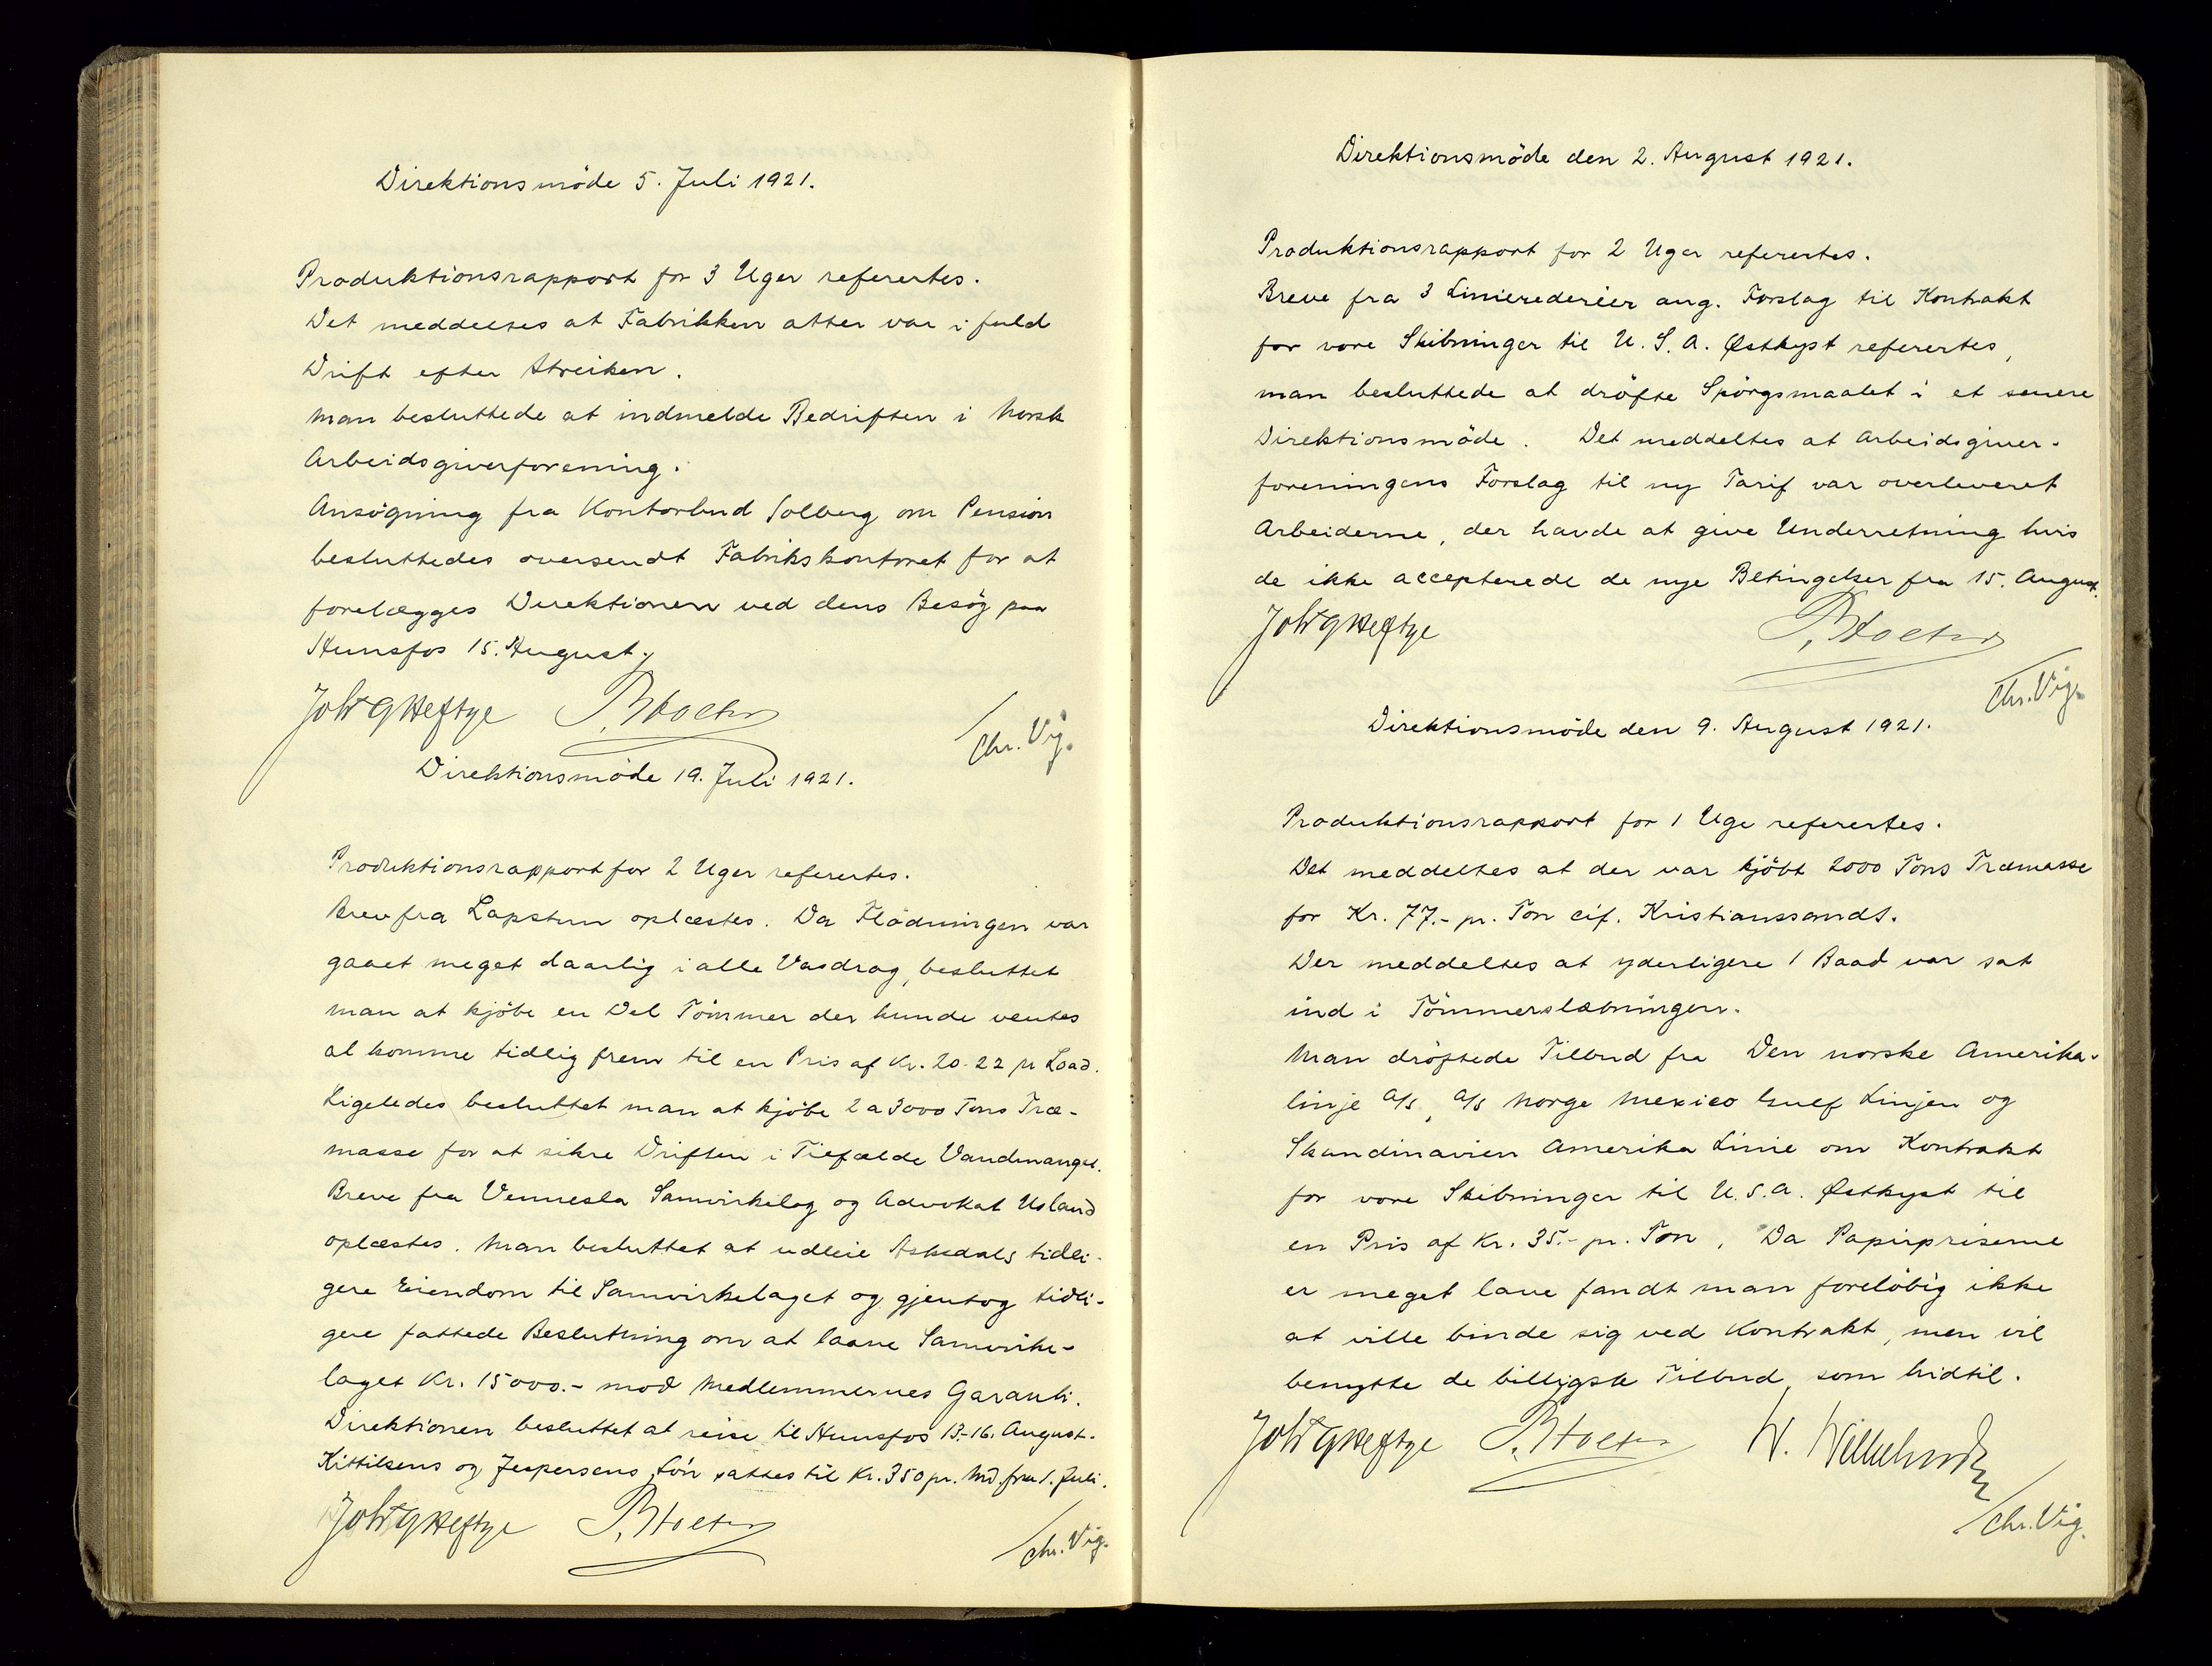 Direktionsmöde 5. Juli 1921.
Produktionsrapport for 3 Uger refertes.
Det meddeltes at Fabrikken atter var i fuld
Drift efter Streiken.
Man besluttede at indmelde Bedriften i Norsk
Arbeidsgiverforening.
Ansögning fra Kontorbud Solberg om Pension
besluttedes oversendt Fabrikskontoret for at
forelægges Direktionen ved dens Besög paa
Hunsfos 15. August.
Joh. G Heftye
Chr. Vig.
Direktionsmöde 19. Juli 1921.
Produktionsrapport for 2 Uger referertes.
Brev fra Lapstun oplæstes. Da Flödningen var
gaaet meget daarlig i alle Vasdrag, besluttet
man at kjöbe en Del Tömmer der kunde ventes
at komme tidlig frem til en Pris af Kr. 20-22 pr Load.
Ligeledes besluttet man at kjöbe 2 a 3000 Tons Træ-
masse for at sikre Driften i Tilfælde Vandmangel.
Breve fra Vennesla Samvirkelag og Advokat Usland
oplæstes. Man besluttet at udleie Askedals tidli-
gere Eiendom til Samvirkelaget og gjentog tidli-
gere fattede Beslutning om at laane Samvirke-
laget Kr. 15000.- mod Medlemmernes Garanti.
Direktionen besluttet at reise til Hunsfos 13.-16. August.
Kittilsens og Jespersens Lön sattes til Kr. 350 pr. Md. fra 1. Juli.
Joh. G Heftye
Chr. Vig.
Direktionsmöde den 2. August 1921.
Produktionsrapport for 2 Uger referertes.
Breve fra 3 Linierederier ang. Forslag til Kontrakt
for vore Skibninger til U.S.A. Østkyst referertes,
man besluttede at dröfte Spörgsmaalet i et senere
Direktionsmöde. Det meddeltes at Arbeidsgiver-
foreningens Forslag til ny Tarif var overleveret
Arbeiderne, der havde at give Underretning hvis
de ikke accepterede de nye Betingelser fra 15. August.
Joh. G Heftye
Chr. Vig.
Direktionsmöde den 9. August 1921.
Produktionsrapport for 1 Uge referertes.
Det meddeltes at der var kjöbt 2000 Tons Træmasse
for Kr. 77.- pr. Ton cif. Kristianssands.
Der meddeltes at yderligere 1 Baad var sat
ind i Tömmerslæbningen.
Man dröftede Tilbud fra Den norske Amerika-
linje A/S, A/S Norge Mexico Gulf Linjen og
Skandinavien Amerika Linie om Kontrakt
for vore Skibninger til U.S.A. Østkyst til
en Pris af Kr. 35.- pr. Ton. Da Papirpriserne
er meget lave fandt man forelöbig ikke
at ville binde sig ved Kontrakt, men vil
benytte de billigste Tilbud, som hidtil.
Joh. G Heftye
Chr. Vig.